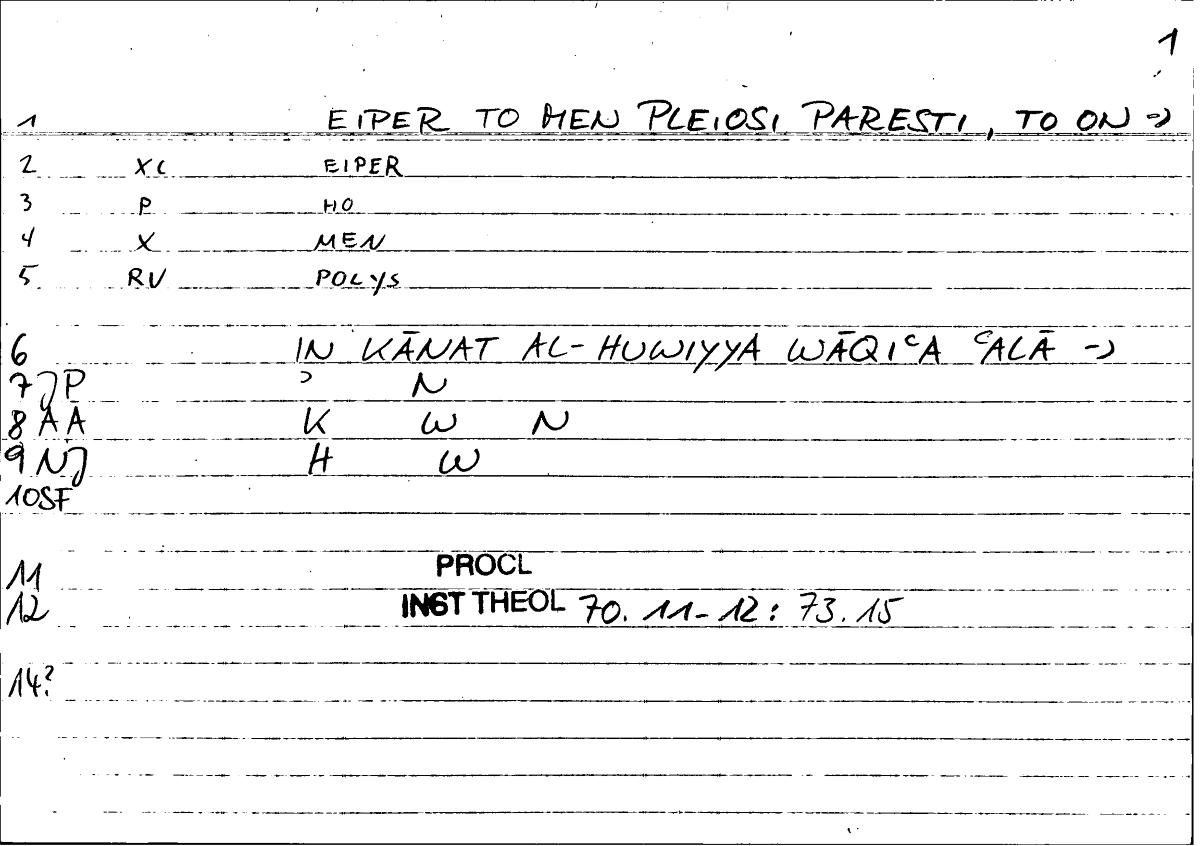 1
1 EIPER TO MEN PLEIOSI PARESTI, TO ON →
2 XC EIPER
3 P HO
4 X MEN
5 RV POLYS
6 IN KĀNAT AL-HUWIYYA WĀQIʿA ʿALĀ →
7 JP ʾ N
8 AA K W N
9 NJ H W
10 SF
11 PROCL
12 INST THEOL 70. 11-12: 73.15
14?